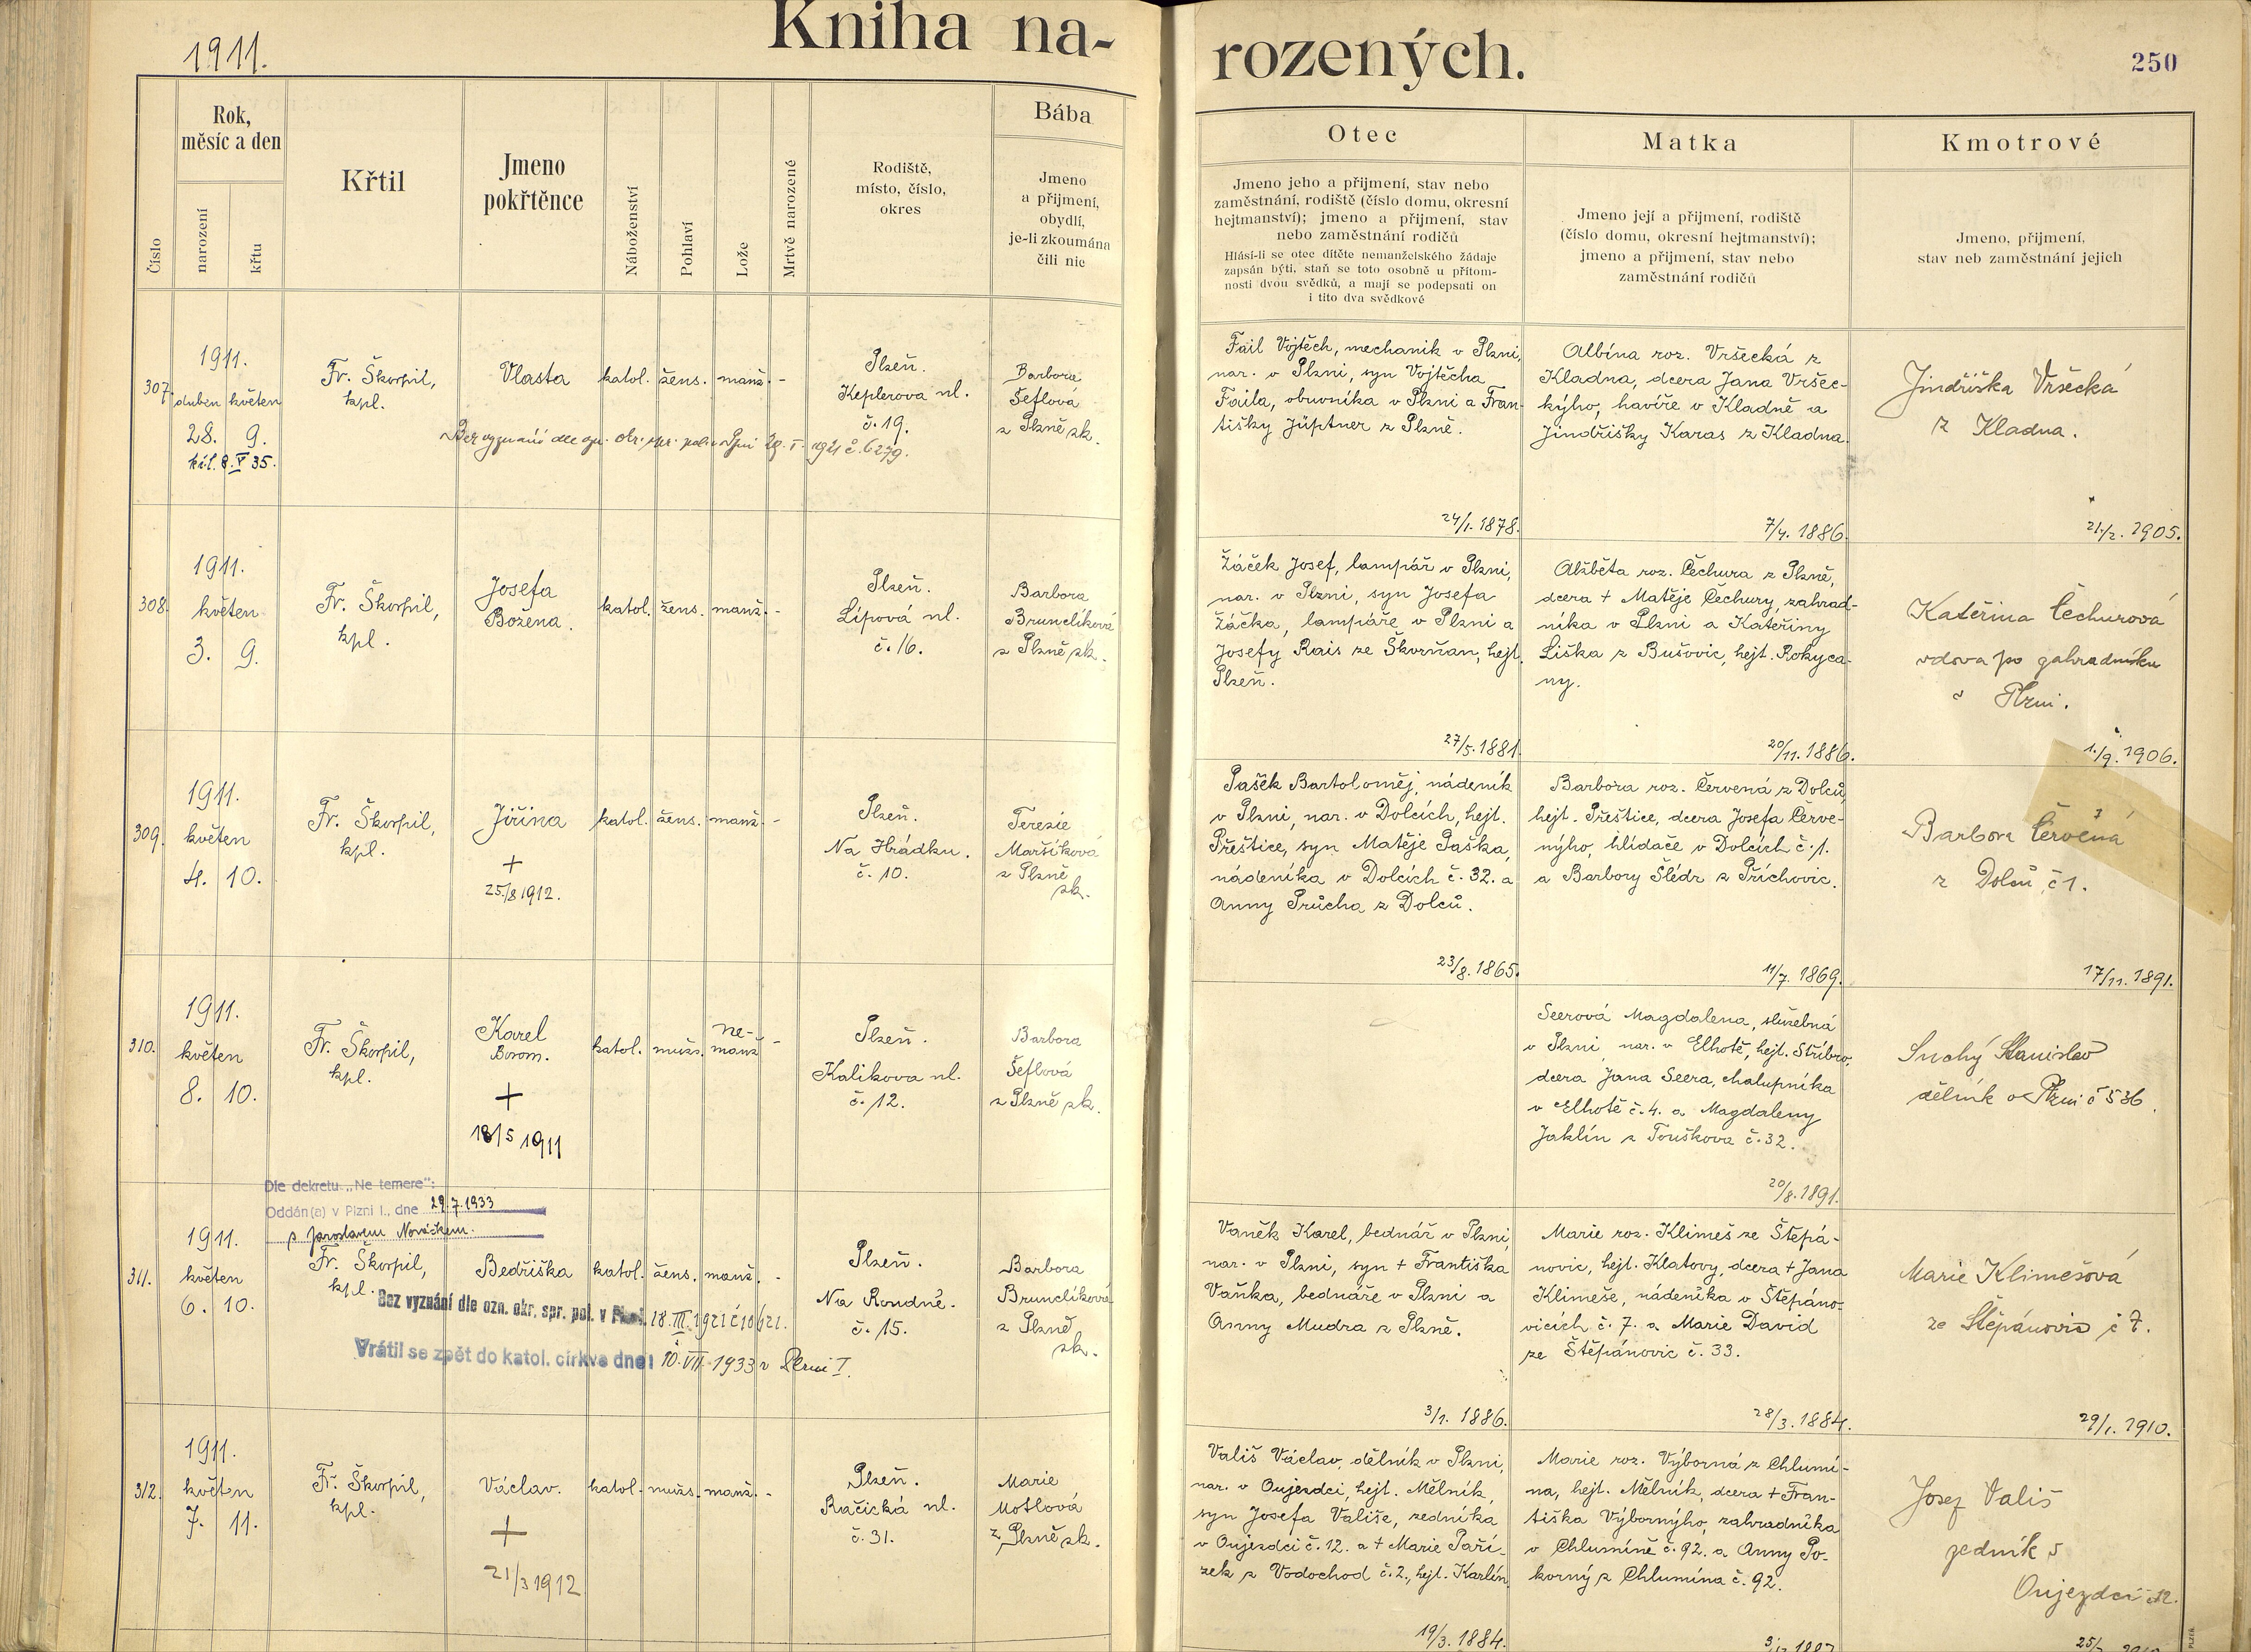 1911.
Kniha na-
rozených.
250
Číslo
Rok,
měsíc a den
narození
křtu
Křtil
Jmeno
pokřtěnce
Náboženství
Pohlaví
Lože
Mrtvě narozené
Rodiště,
místo, číslo,
okres
Bába
Jmeno
a příjmení,
obydlí,
je-li zkoumána
čili nic
Otec
Jmeno jeho a přijmení, stav nebo
zaměstnání, rodiště (číslo domu, okresní
hejtmanství); jmeno a přijmení, stav
nebo zaměstnání rodičů
Hlásí-li se otec dítěte nemanželského žádaje
zapsán býti, staň se toto osobně u přítom-
nosti dvou svědků, a mají se podepsati on
i tito dva svědkové
Matka
Jmeno její a přijmení, rodiště
(číslo domu, okresní hejtmanství);
jmeno a přijmení, stav nebo
zaměstnání rodičů
Kmotrové
Jmeno, přijmení,
stav neb zaměstnání jejich
307.
1911.
duben květen
28. 9.
8. V 35.
Fr. Škorpil,
kpl.
Vlasta
katol. žens. manž. -
Plzeň.
Keplerova ul.
č. 19.
Barbora
Šeflová
z Plzně zk.
Bez vyznání dle ozn. okr. spr. pol. v Plzni 1921 č. 6279.
Fail Vojtěch, mechanik v Plzni,
nar. v Plzni, syn Vojtěcha
Faila, obuvníka v Plzni a Fran-
tišky Jüptner z Plzně.
24/1. 1878.
Albína roz. Vršecká z
Kladna, dcera Jana Vršec-
kýho, havíře v Kladně a
Jindřišky Karas z Kladna.
7/4. 1886.
Jindřiška Vršecká
z Kladna.
21/2. 1905.
308.
1911.
květen
3. 9.
Fr. Škorpil,
kpl.
Josefa
Božena.
katol. žens. manž. -
Plzeň.
Lípová ul.
č. 16.
Barbora
Brunclíková
z Plzně zk.
Žáček Josef, lampář v Plzni,
nar. v Plzni, syn Josefa
Žáčka, lampáře v Plzni a
Josefy Rais ze Škvrňan, hejt.
Plzeň.
27/5. 1881.
Alžběta roz. Čechura z Plzně,
dcera + Matěje Čechury, zahrad-
níka v Plzni a Kateřiny
Liška z Bušovic, hejt. Rokyca-
ny.
20/11. 1886.
Kateřina Čechurová
vdova po zahradníku
v Plzni.
1./9. 1906.
309.
1911.
květen
4. 10.
Fr. Škorpil,
kpl.
Jiřina
+
25./8 1912.
katol. žens. manž. -
Plzeň.
Na Hrádku.
č. 10.
Terezie
Maršíková
z Plzně
zk.
Pašek Bartoloměj, nádeník
v Plzni, nar. v Dolcích, hejt.
Přeštice, syn Matěje Paška,
nádeníka v Dolcích č. 32. a
Anny Průcha z Dolců.
23/8. 1865.
Barbora roz. Červená z Dolců,
hejt. Přeštice, dcera Josefa Červe-
nýho, hlídače v Dolcích č. 1.
a Barbory Šlédr z Příchovic.
11/7. 1869.
Barbora Červená
z Dolců č 1.
17/11. 1891.
310.
1911.
květen
8. 10.
Fr. Škorpil,
kpl.
Karel
Borom.
+
18/5 1911
katol. mužs. ne-
manž -
Plzeň.
Kalikova ul.
č. 12.
Barbora
Šeflová
z Plzně zk.
Seerová Magdalena, služebná
v Plzni, nar. v Elhotě, hejt. Stříbro,
dcera Jana Seera, chalupníka
v Elhotě č. 4. a Magdaleny
Jaklín z Touškova č. 32.
20/8. 1891.
Suchý Stanislav
dělník v Plzni č 536.
Dle dekretu „Ne temere":
Oddán(a) v Plzni I., dne 29. 7. 1933
s Jaroslavem Nováčkem.
311.
1911.
květen
6. 10.
Fr. Škorpil,
kpl.
Bedřiška
katol. žens. manž. -
Plzeň.
Na Roudné.
č. 15.
Barbora
Brunclíková
z Plzně
zk.
Bez vyznání dle ozn. okr. spr. pol. v Plzni 18. III. 1921 č 10621.
Vrátil se zpět do katol. církve dne: 10. VII. 1933 v Plzni I.
Vaněk Karel, bednář v Plzni,
nar. v Plzni, syn + Františka
Vaňka, bednáře v Plzni a
Anny Mudra z Plzně.
3/1. 1886.
Marie roz. Klimeš ze Štěpá-
novic, hejt. Klatovy, dcera + Jana
Klimeše, nádeníka v Štěpáno-
vicích č. 7. a Marie David
ze Štěpánovic č. 33.
28/3. 1884.
Marie Klimešová
ze Štěpánovic č 7.
29/1. 1910.
312.
1911.
květen
7. 11.
Fr. Škorpil,
kpl.
Václav.
+
21/3 1912
katol. mužs. manž. -
Plzeň.
Račická ul.
č. 31.
Marie
Motlová
z Plzně zk.
Vališ Václav, dělník v Plzni,
nar. v Oujezdci, hejt. Mělník,
syn Josefa Vališe, zedníka
v Oujezdci č. 12. a + Marie Paří-
zek z Vodochod č. 2., hejt. Karlín.
19/3. 1884.
Marie roz. Výborná z Chlumí-
na, hejt. Mělník, dcera + Fran-
tiška Výbornýho, zahradníka
v Chlumíně č. 92. a Anny Po-
korný z Chlumína č. 92.
Josef Vališ
zedník v
Oujezdci č 12.